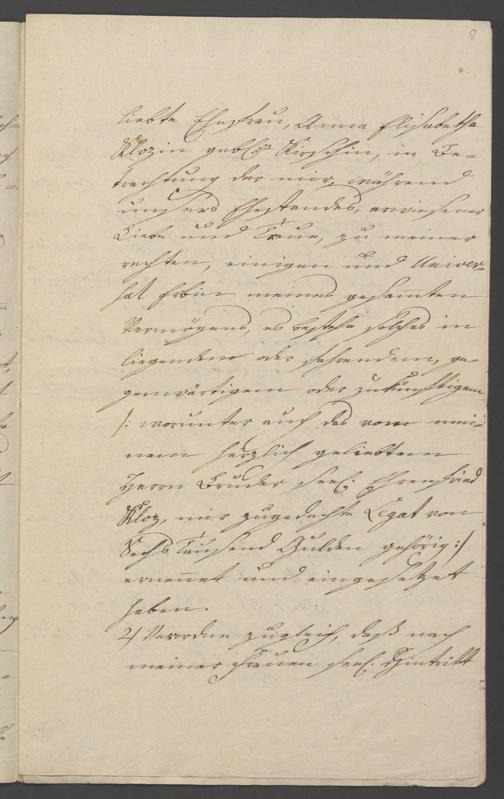 8
liebte Ehefrau, Anna Elisabetha
Klozin gebl. Kirschin, in Be-
trachtung der mir, während
unsers Ehestandes, erwiesener
Liebe und Treue, zu meiner
rechten, einigen und Univer-
sal Erbin meines gesamten
Vermögens, es bestehe solches in
liegendem oder fahrendem, ge-
genwärtigem oder zukünftigem
/: worunter auch das vom mei-
nem herzlich geliebtem
Herrn Bruder seel. Ehrenfried
Kloz, mir zugedachte Legat von
Sechs Tausend Gulden gehörig :/
ernennet und eingesetzet
haben.
2/ Verordne zugleich, daß nach
meiner Frauen seel. Hintritt